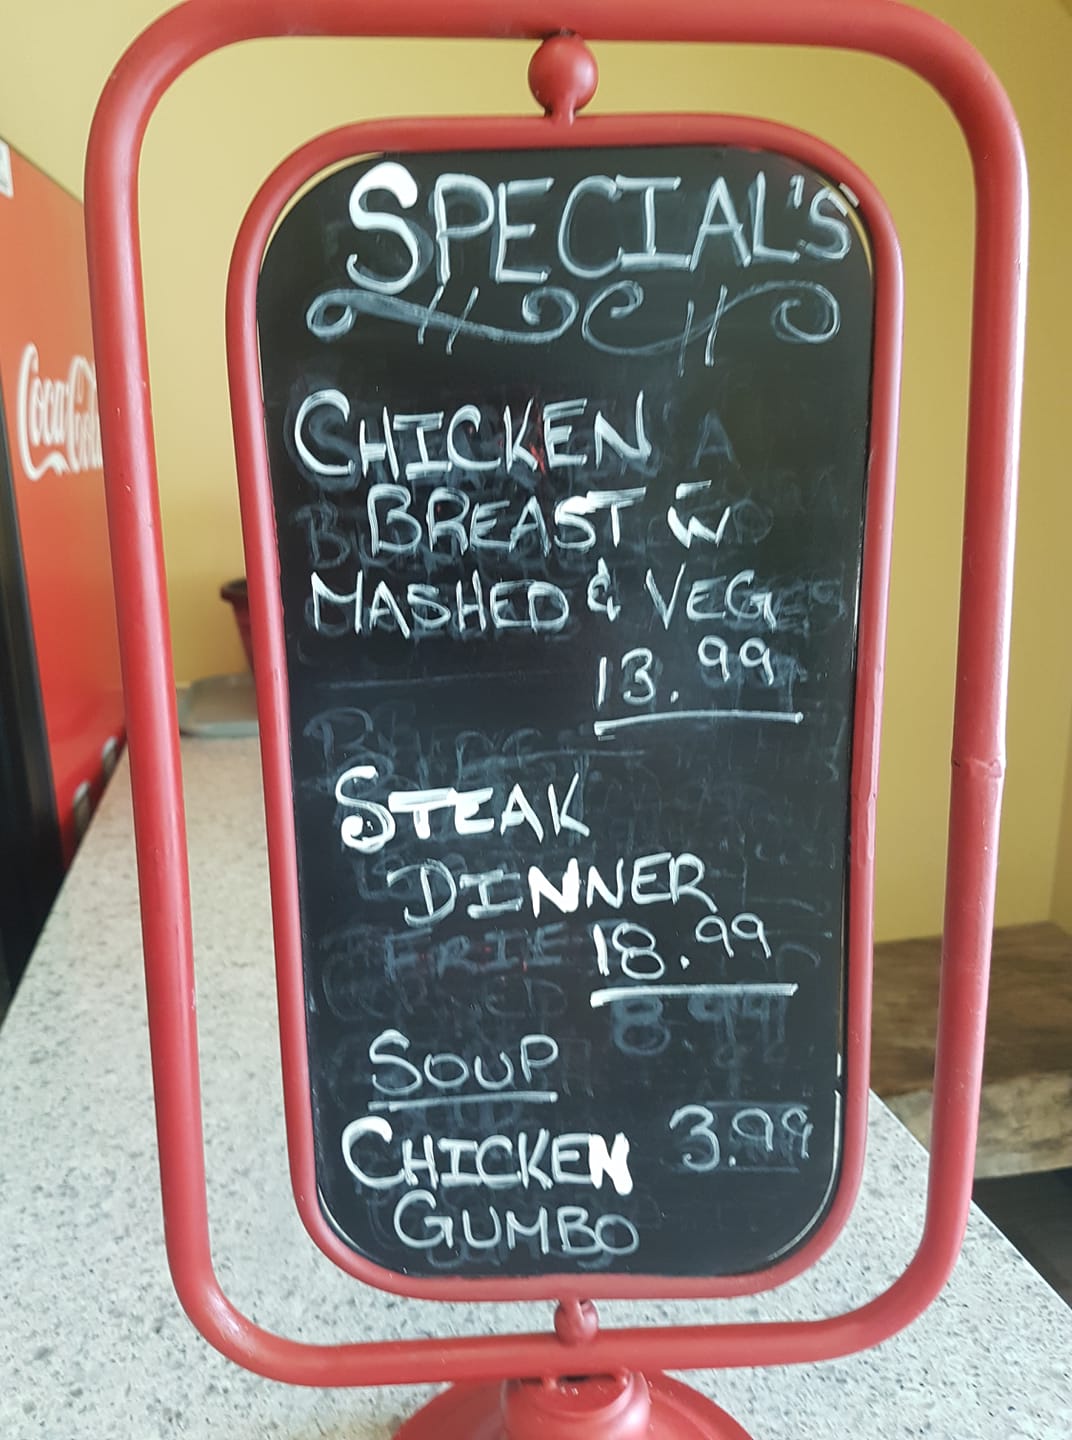 Coca-Cola
SPECIAL'S
CHICKEN
BREAST W̄
MASHED & VEG
13.99
STEAK
DINNER
18.99
SOUP
CHICKEN 3.99
GUMBO